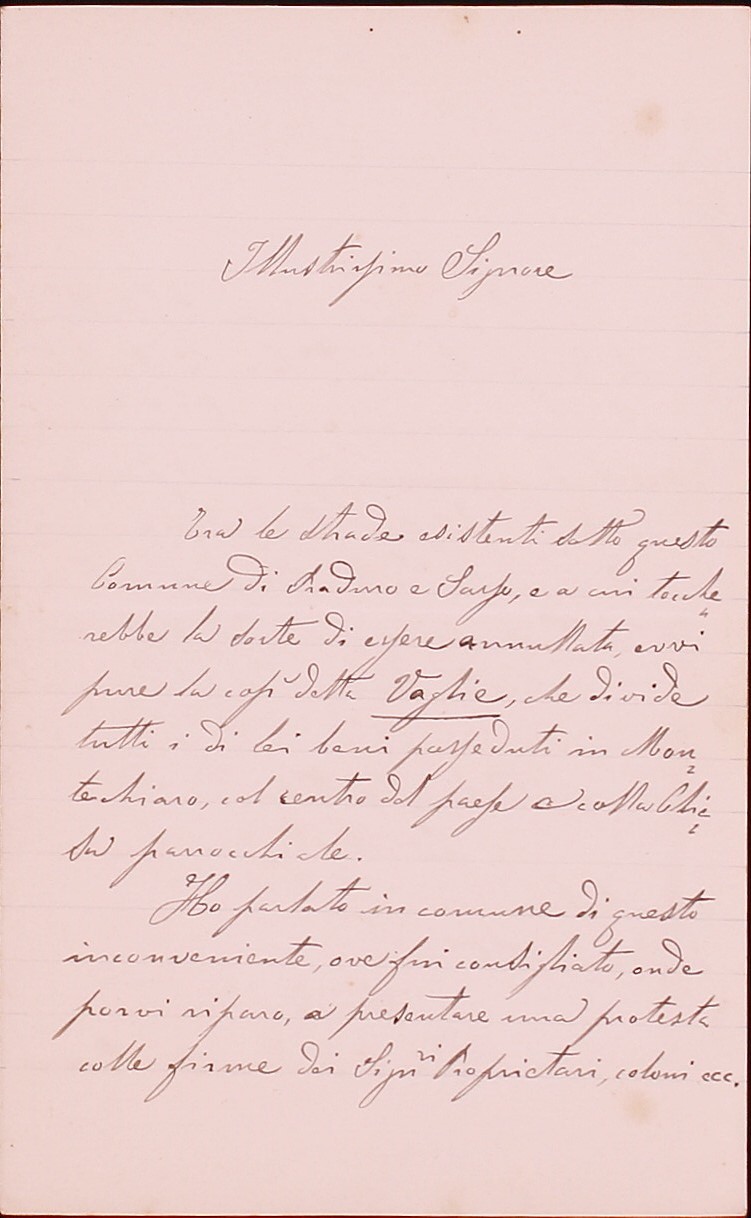 Illustrissimo Signore
Tra le strade esistenti sotto questo
Comune di Praduro e Sasso, e a cui tocche„
rebbe la sorte di essere annullata, evvi
pure la così detta Vaglie, che divide
tutti i di lei beni posseduti in Mon„
techiaro, col centro del paese e colla Chie„
sa parrocchiale.
Ho parlato in comune di questo
inconveniente, ove fui consigliato, onde
porvi riparo, a presentare una protesta
colle firme dei Sigri Proprietari, coloni ecc.